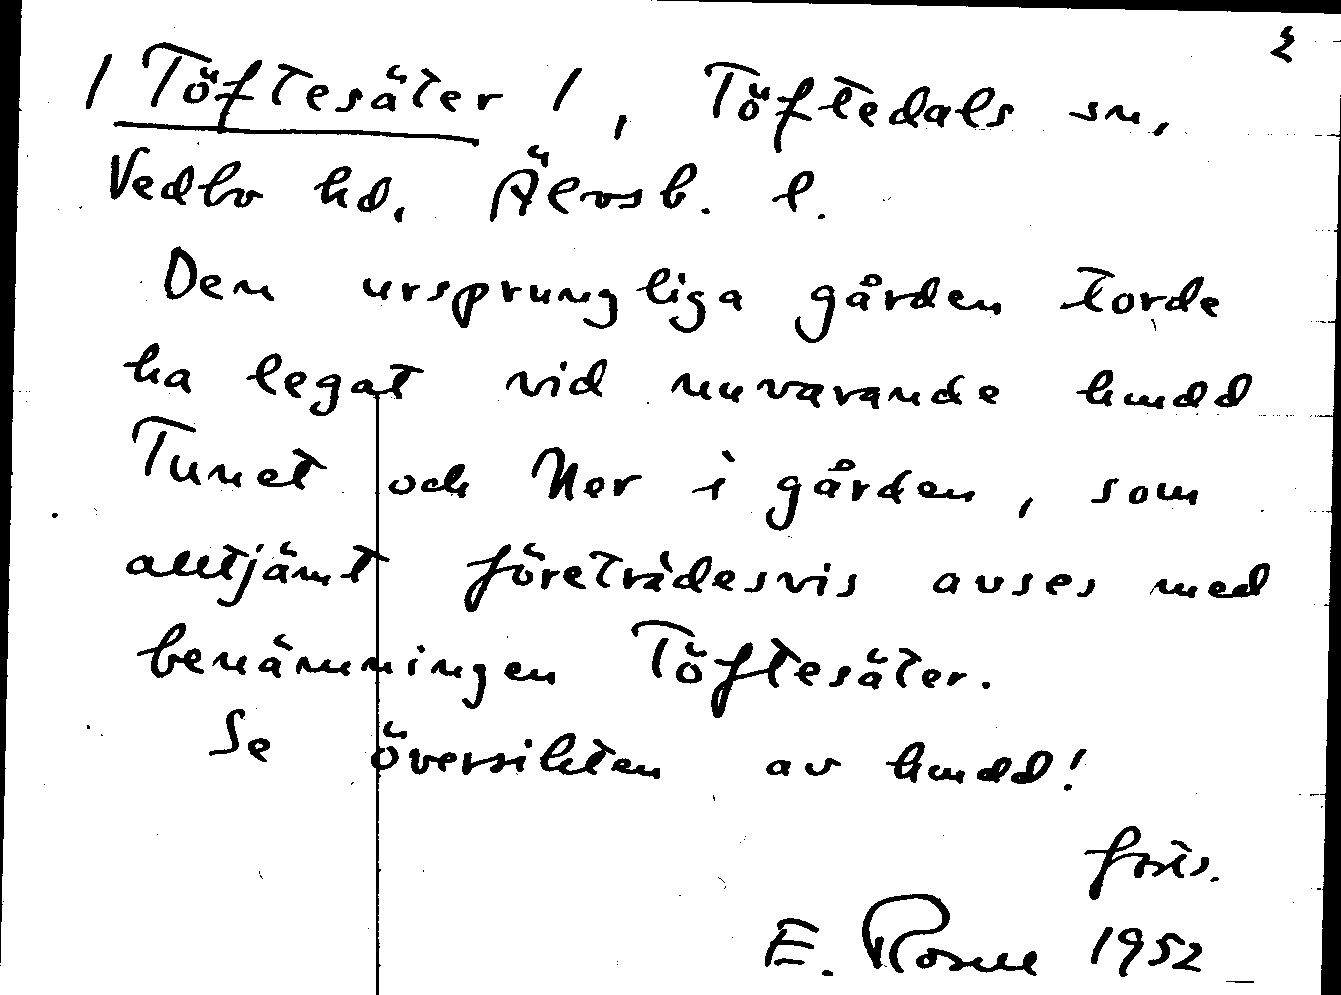 2
/ Töftesäter /, Töftedals sn,
Vedbo hd. Älvsb. l.
Den ursprungliga gården torde
ha legat vid nuvarande hmdd
Tunet och Ner i gården, som
alltjämt företrädesvis avses med
benämningen Töftesäter.
Se översikten av hmdd!
forts.
E. Rosell 1952